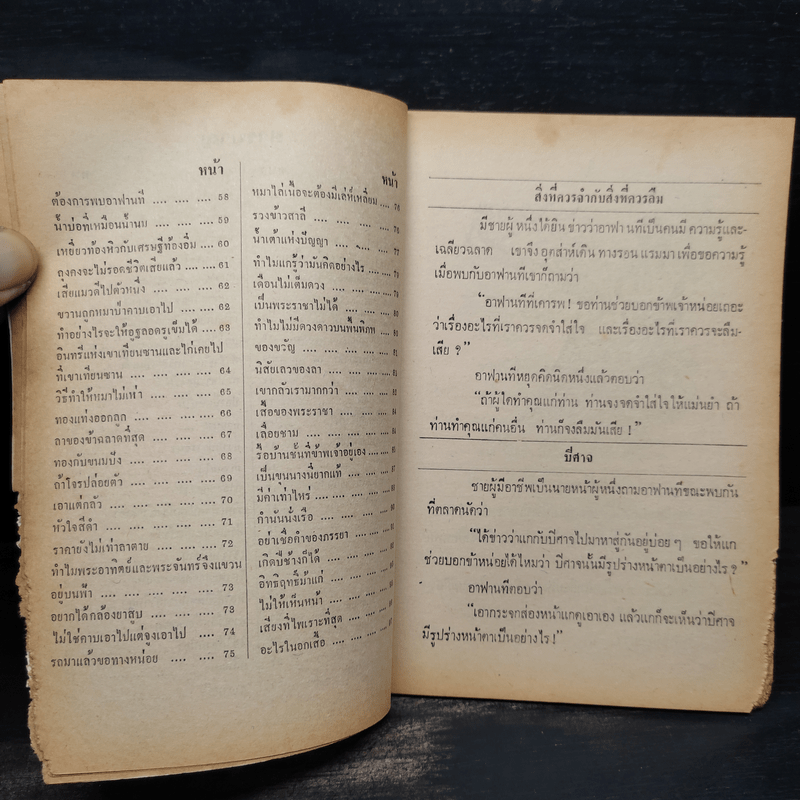 หน้า
ต้องการพบอาฟานที .... .... .... 58
น้ำบ่อที่เหมือนน้ำนม .... .... .... 59
เหยี่ยวท้องหิวกับเศรษฐีท้องอิ่ม .... 60
ถุงคงจะไม่รอดชีวิตเสียแล้ว .... .... 61
เสียแมวดีไปตัวหนึ่ง .... .... .... 62
ขวานถูกหมาบ้าคาบเอาไป .... .... 62
ทำอย่างไรจะให้อูฐลอดรูเข็มได้ .... 63
อินทรีแห่งเขาเทียนซานและไก่เคยไป
ที่เขาเทียนซาน .... .... .... 64
วิธีทำให้หมาไม่เห่า .... .... .... 65
ทองแท่งออกลูก .... .... .... 66
ลาของข้าฉลาดที่สุด .... .... .... 67
ทองกับขนมปัง .... .... .... 68
ถ้าโจรปล่อยตัว .... .... .... 69
เอาแต่กลัว .... .... .... .... 70
หัวใจสีดำ .... .... .... .... 71
ราคายังไม่เท่าลาตาย .... .... .... 72
ทำไมพระอาทิตย์และพระจันทร์จึงแขวน
อยู่บนฟ้า .... .... .... .... 73
อยากได้กล้องยาสูบ .... .... .... 73
ไม่ใช่คาบเอาไปแต่จูงเอาไป .... .... 74
รถมาแล้วขอทางหน่อย .... .... .... 75
หน้า
หมาไล่เนื้อจะต้องมีเล่ห์เหลี่ยม .... 76
รวงข้าวสาลี .... .... .... ....
น้ำเต้าแห่งปัญญา .... .... .... 77
ทำไมแกรู้ว่ามันคิดอย่างไร .... ....
เดือนไม่เต็มดวง .... .... ....
เป็นพระราชาไม่ได้ .... .... ....
ทำไมไม่มีดวงดาวบนพื้นพิภพ
ของขวัญ .... .... .... ....
นิสัยเลวของลา .... .... ....
เขากลัวเรามากกว่า .... .... ....
เสื้อของพระราชา .... .... ....
เลื่อยชาม .... .... .... ....
รื้อบ้านชั้นที่ข้าพเจ้าอยู่เอง ....
เป็นขุนนางนี้ยากแท้ .... ....
มีค่าเท่าไหร่ .... .... ....
กำนันนั่งเรือ .... .... ....
อย่าเชื่อคำของภรรยา .... ....
เกิดปีช้างก็ได้ .... .... ....
อิทธิฤทธิ์ม้าแก่ .... .... ....
ไม่ให้เห็นหน้า .... .... ....
เสียงที่ไพเราะที่สุด .... ....
อะไรในอกเสื้อ .... .... ....
สิ่งที่ควรจำกับสิ่งที่ควรลืม
มีชายผู้หนึ่งได้ยินข่าวว่าอาฟานทีเป็นคนมีความรู้และ-
เฉลียวฉลาด เขาจึงอุตส่าห์เดินทางรอนแรมมาเพื่อขอความรู้
เมื่อพบกับอาฟานทีเขาก็ถามว่า
“อาฟานทีที่เคารพ! ขอท่านช่วยบอกข้าพเจ้าหน่อยเถอะ
ว่าเรื่องอะไรที่เราควรจดจำใส่ใจ และเรื่องอะไรที่เราควรจะลืม
เสีย?”
อาฟานทีหยุดคิดนิดหนึ่งแล้วตอบว่า
“ถ้าผู้ใดทำคุณแก่ท่าน ท่านจงจดจำใส่ใจให้แม่นยำ ถ้า
ท่านทำคุณแก่คนอื่น ท่านก็จงลืมมันเสีย!”
ปีศาจ
ชายผู้มีอาชีพเป็นนายหน้าผู้หนึ่งถามอาฟานทีขณะพบกัน
ที่ตลาดนัดว่า
“ได้ข่าวว่าแกกับปีศาจไปมาหาสู่กันอยู่บ่อยๆ ขอให้แก
ช่วยบอกข้าหน่อยได้ไหมว่า ปีศาจนั้นมีรูปร่างหน้าตาเป็นอย่างไร?”
อาฟานทีตอบว่า
“เอากระจกส่องหน้าแกดูเอาเอง แล้วแกก็จะเห็นว่าปีศาจ
มีรูปร่างหน้าตาเป็นอย่างไร!”